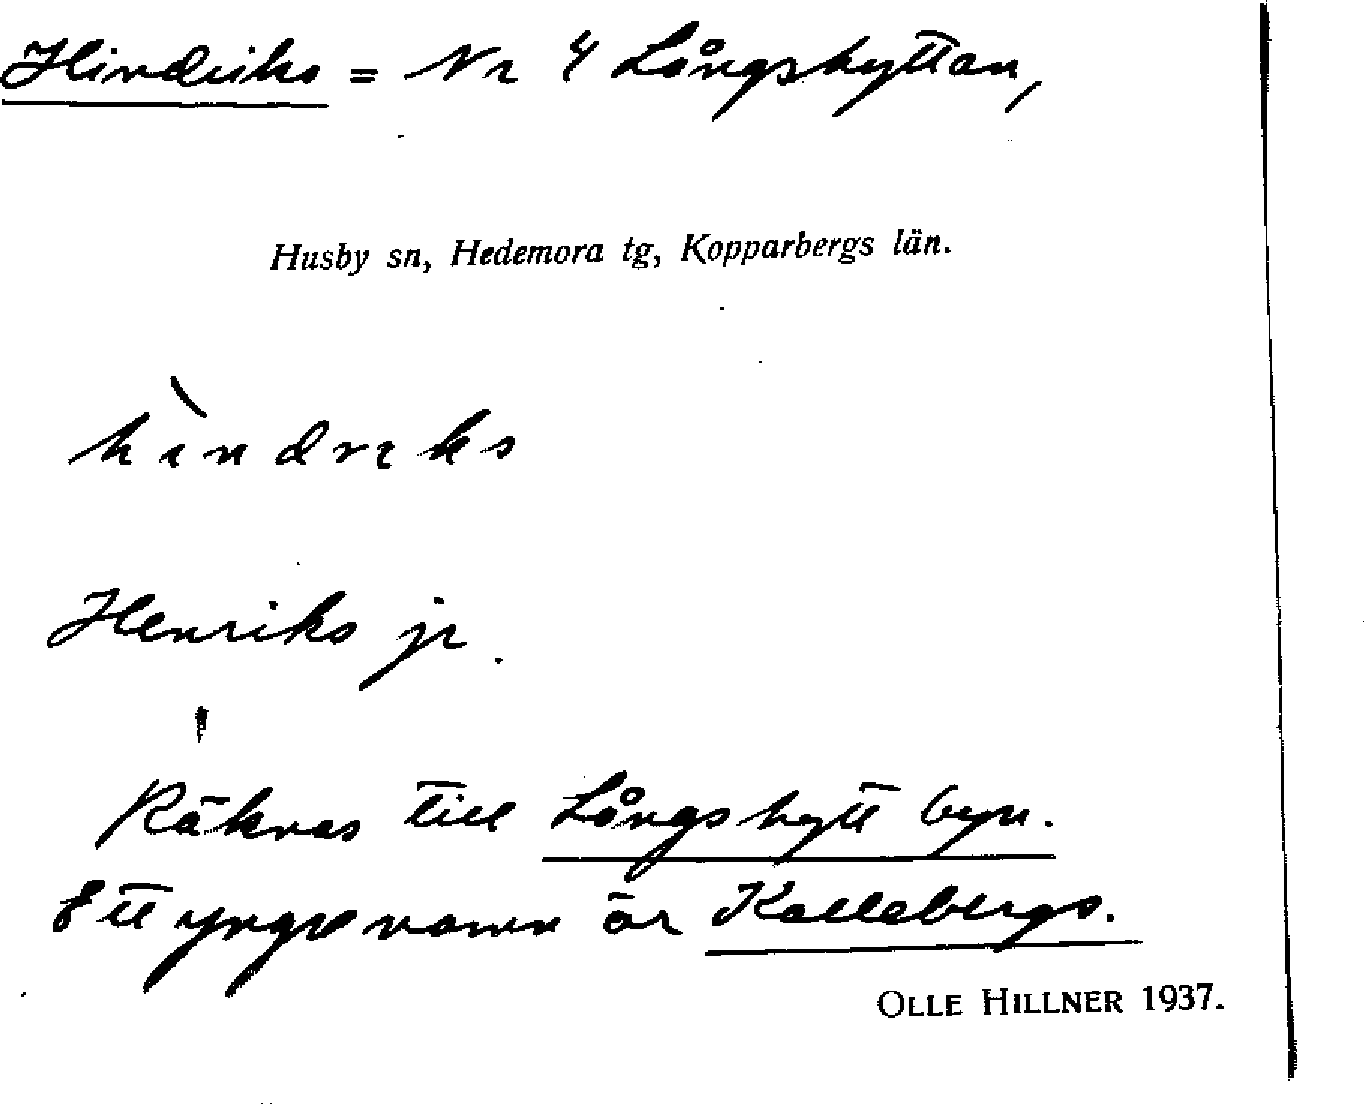 Hindriks = Nr 4 Långshyttan,
Husby sn, Hedemora tg, Kopparbergs län.
hìndrıks
Henriks jr.
Räknas till Långshyttbyn.
Ett yngre namn är Kallebergs.
OLLE HILLNER 1937.